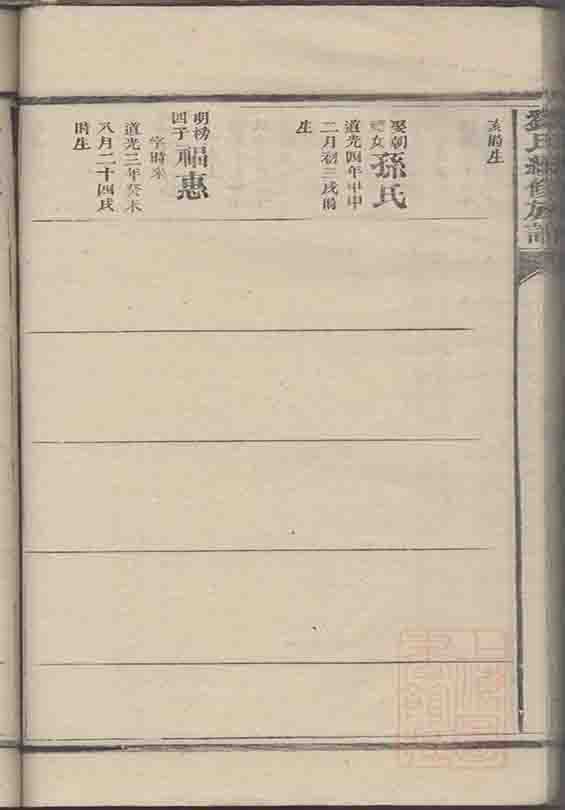 亥時生
娶朝
女
孫氏
道光四年甲申
二月初三戌時
生
明榜
四子
福惠
字時來
道光三年癸未
八月二十四戌
時生